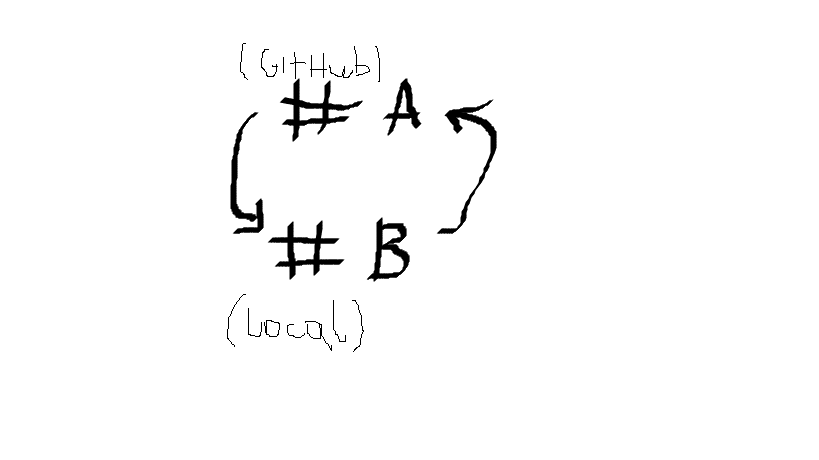 (GitHub)
# A
# B
(Local)